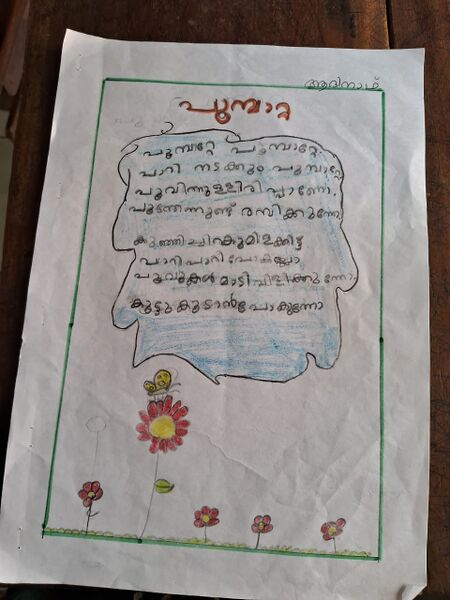 ആദിനാഥ്
പൂമ്പാറ്റ
പൂമ്പാറ്റേ പൂമ്പാറ്റേ
പാറി നടക്കും പൂമ്പാറ്റേ
പൂവിന്നുള്ളിലിരിപ്പാണോ.
പൂന്തേനുണ്ട് രസിക്കുന്നോ
കുഞ്ഞിച്ചിറകുമിളക്കീട്ട്
പാറിപാറി പോകല്ലാ
പൂവുകൾ മാടിവിളിക്കുന്നോ
കൂട്ടു കൂടാൻ പോകുന്നോ